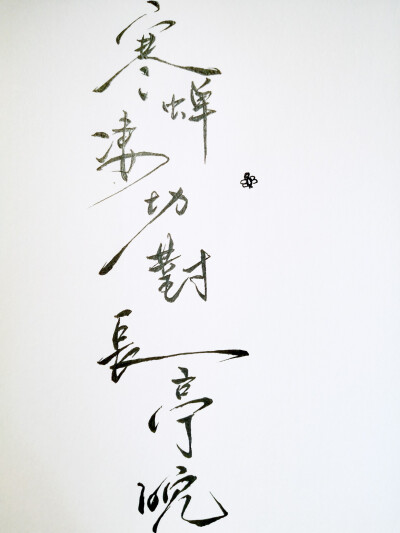 寒蝉凄切對長亭晚